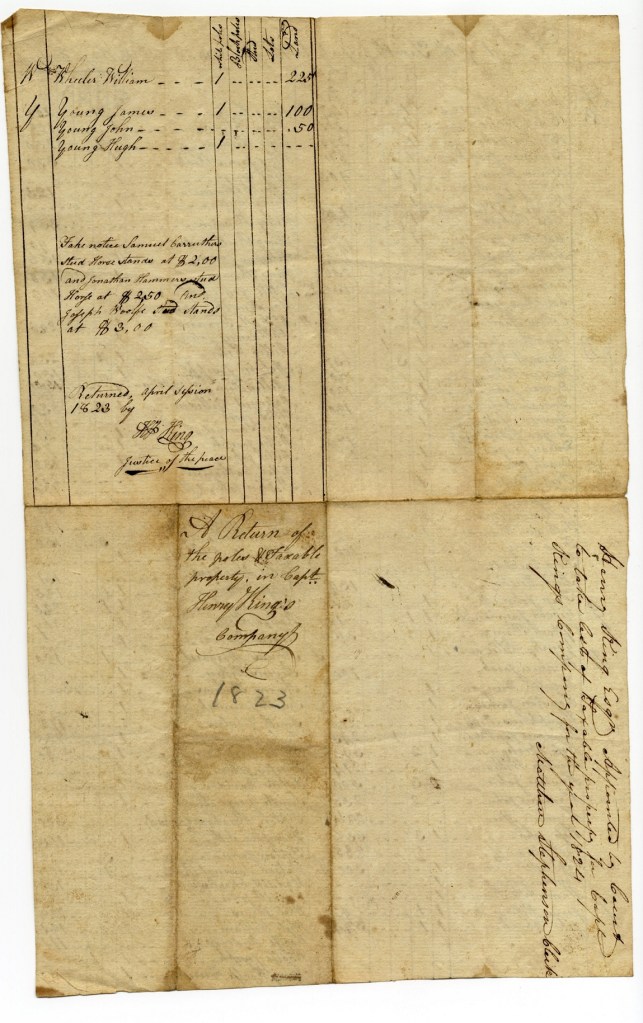 White poles
Black poles
Stud
Lots
Land
W Wheeler William - - - 1 225
Y Young James - - - 1 100
Young John - - - - .50
Young Hugh - - - 1
Take notice Samuel Carruthers
Stud Horse Stands at $2,00
and Jonathan Hammers stud
Horse at $2,50 And
Joseph Woolfe Stud Stands
at $3,00
Returned, April Session
1823 by
Wm King
Justice of the peace
A Return of
the poles & Taxable
property. in Capt.
Henry King's
Company
1823
Henry King Esqr. Appointed by Court
to take list of taxable property in Capt
Kings Company for the year 1824
Matthew Stephenson Clerk